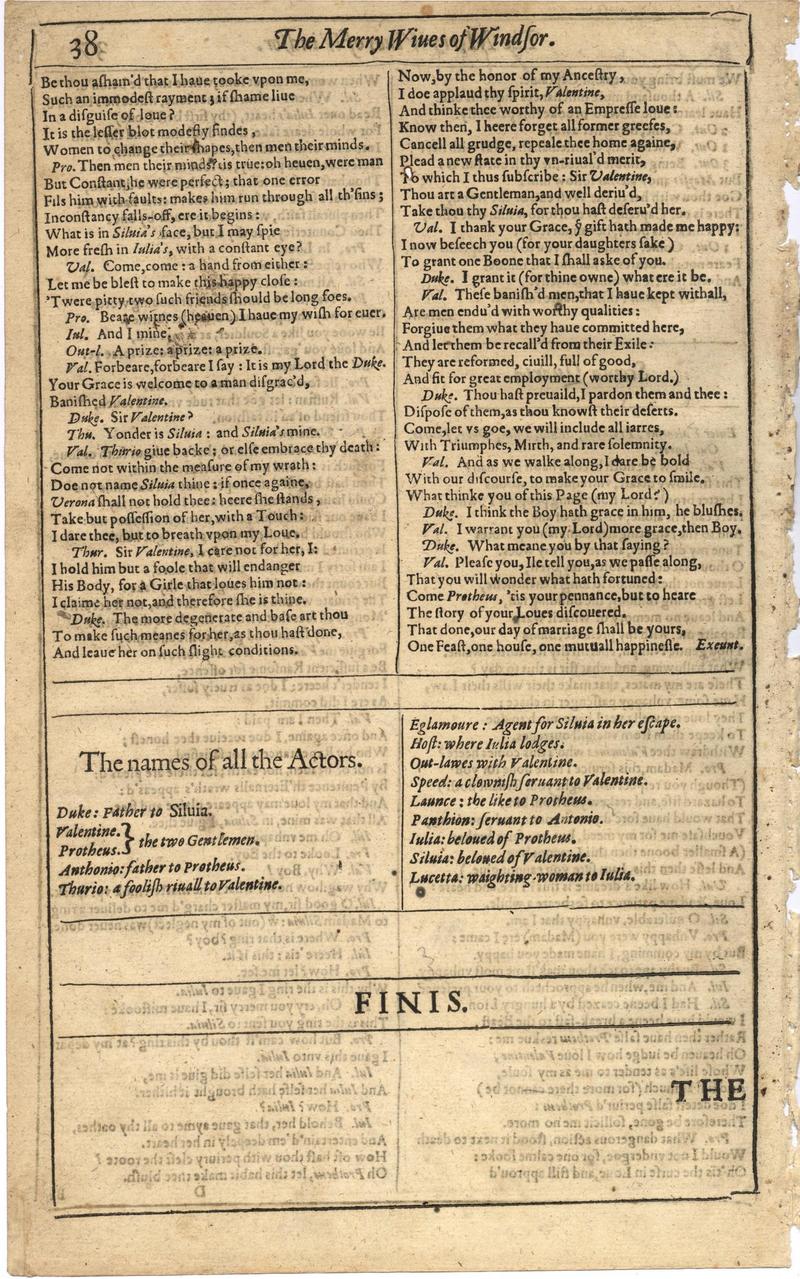 38
The Merry Wiues of Windſor.
Be thou aſham'd that I haue tooke vpon me,
Such an immodeſt rayment; if ſhame liue
In a diſguiſe of loue?
It is the leſſer blot modeſty findes,
Women to change their ſhapes, then men their minds.
Pro. Then men their minds? tis true: oh heuen, were man
But Conſtant, he were perfect; that one error
Fils him with faults: makes him run through all th'ſins;
Inconſtancy falls-off, ere it begins:
What is in Siluia's face, but I may ſpie
More freſh in Iulia's, with a conſtant eye?
Val. Come, come: a hand from either:
Let me be bleſt to make this happy cloſe:
'Twere pitty two ſuch friends ſhould be long foes.
Pro. Beare witnes (heauen) I haue my wiſh for euer.
Iul. And I mine.
Out-l. A prize: a prize: a prize.
Val. Forbeare, forbeare I ſay: It is my Lord the Duke.
Your Grace is welcome to a man diſgrac'd,
Baniſhed Valentine.
Duke. Sir Valentine?
Thu. Yonder is Siluia: and Siluia's mine.
Val. Thurio giue backe; or elſe embrace thy death:
Come not within the meaſure of my wrath:
Doe not name Siluia thine: if once againe,
Verona ſhall not hold thee: heere ſhe ſtands,
Take but poſſeſſion of her, with a Touch:
I dare thee, but to breath vpon my Loue.
Thur. Sir Valentine, I care not for her, I:
I hold him but a foole that will endanger
His Body, for a Girle that loues him not:
I claime her not, and therefore ſhe is thine.
Duke. The more degenerate and baſe art thou
To make ſuch meanes for her, as thou haſt done,
And leaue her on ſuch ſlight conditions.
Now, by the honor of my Anceſtry,
I doe applaud thy ſpirit, Valentine,
And thinke thee worthy of an Empreſſe loue:
Know then, I heere forget all former greefes,
Cancell all grudge, repeale thee home againe,
Plead a new ſtate in thy vn-riual'd merit,
To which I thus ſubſcribe: Sir Valentine,
Thou art a Gentleman, and well deriu'd,
Take thou thy Siluia, for thou haſt deſeru'd her.
Val. I thank your Grace, ÿ gift hath made me happy:
I now beſeech you (for your daughters ſake)
To grant one Boone that I ſhall aske of you.
Duke. I grant it (for thine owne) what ere it be.
Val. Theſe baniſh'd men, that I haue kept withall,
Are men endu'd with worthy qualities:
Forgiue them what they haue committed here,
And let them be recall'd from their Exile:
They are reformed, ciuill, full of good,
And fit for great employment (worthy Lord.)
Duke. Thou haſt preuaild, I pardon them and thee:
Diſpoſe of them, as thou knowſt their deſerts.
Come, let vs goe, we will include all iarres,
With Triumphes, Mirth, and rare ſolemnity.
Val. And as we walke along, I dare be bold
With our diſcourſe, to make your Grace to ſmile.
What thinke you of this Page (my Lord?)
Duke. I think the Boy hath grace in him, he bluſhes.
Val. I warrant you (my Lord) more grace, then Boy.
Duke. What meane you by that ſaying?
Val. Pleaſe you, Ile tell you, as we paſſe along,
That you will wonder what hath fortuned:
Come Protheus, 'tis your pennance, but to heare
The ſtory of your Loues diſcouered.
That done, our day of marriage ſhall be yours,
One Feaſt, one houſe, one mutuall happineſſe. Exeunt.
The names of all the Actors.
Duke: Father to Siluia.
Valentine. } the two Gentlemen.
Protheus.
Anthonio: father to Protheus.
Thurio: a fooliſh riuall to Valentine.
Eglamoure: Agent for Siluia in her eſcape.
Hoſt: where Iulia lodges.
Out-lawes with Valentine.
Speed: a clowniſh ſeruant to Valentine.
Launce: the like to Protheus.
Panthion: ſeruant to Antonio.
Iulia: beloued of Protheus.
Siluia: beloued of Valentine.
Lucetta: waighting-woman to Iulia.
FINIS.
THE